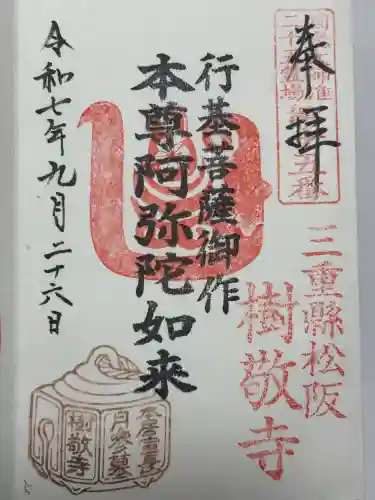 奉拝
五番
三重縣松阪
樹敬寺
行基菩薩御作
本尊阿弥陀如来
令和七年九月二十六日
本居宣長
樹敬寺